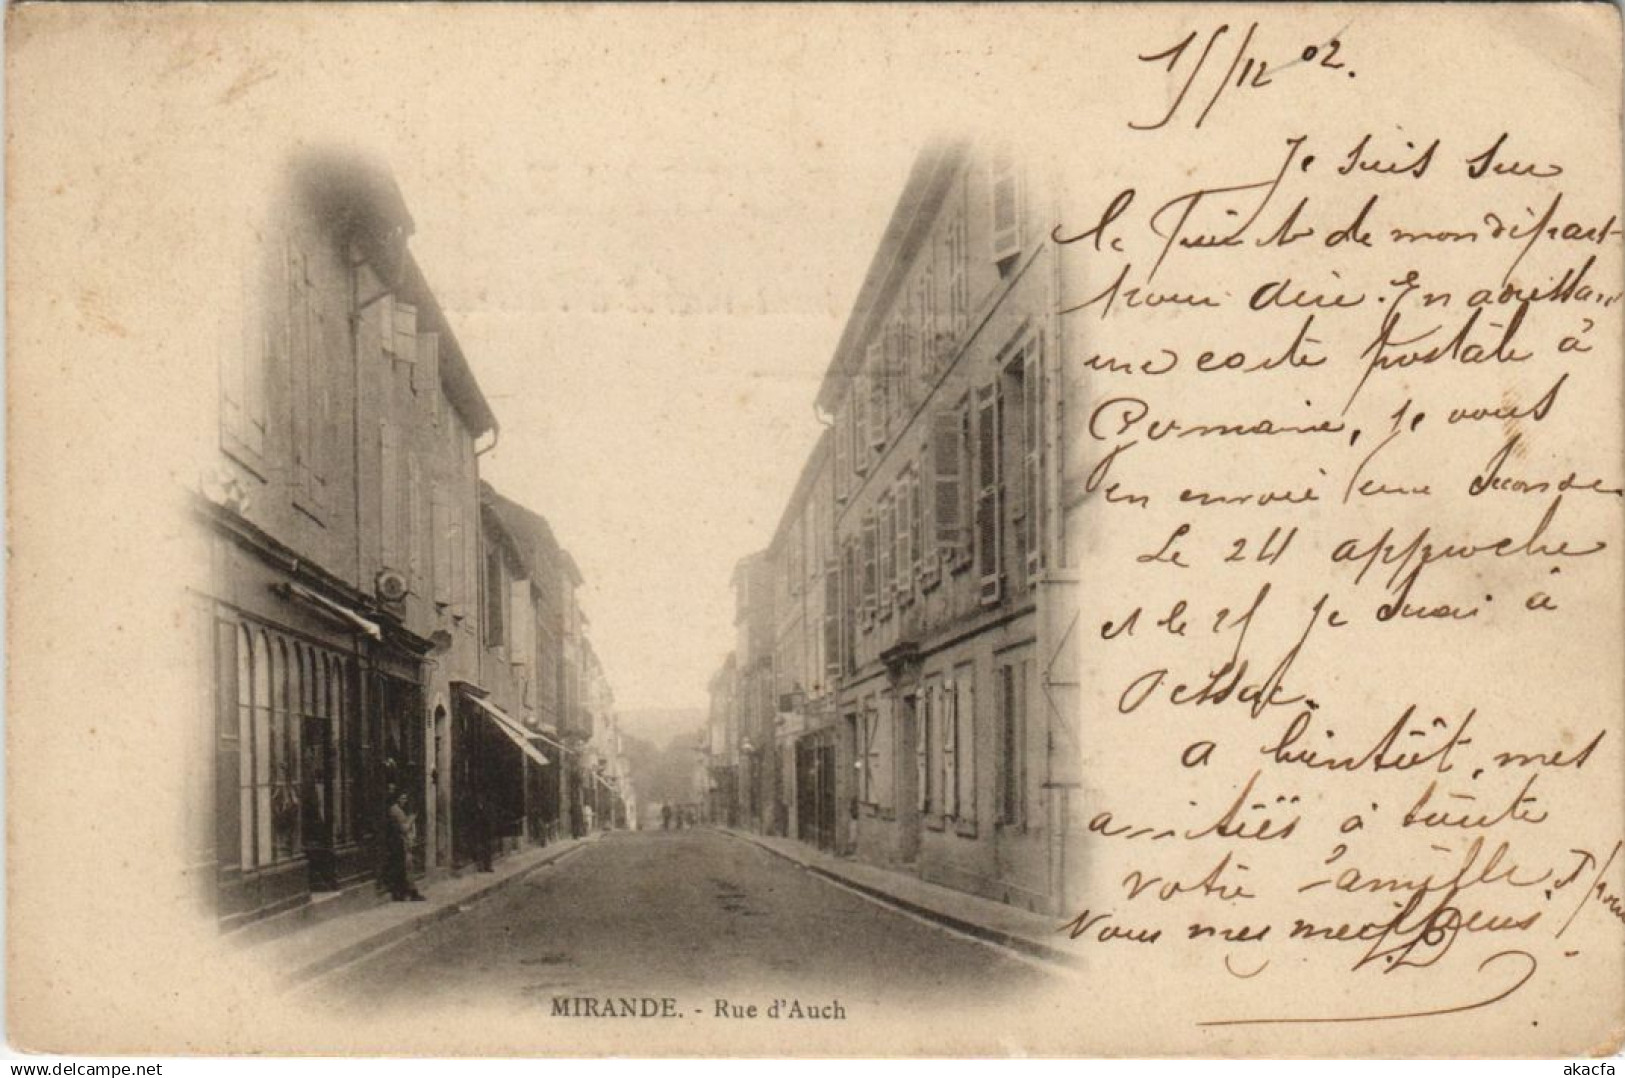 15/12 02.
Je suis sur
le point de mon départ
pour dire. En adressant
une carte postale à
Germaine, je vous
en envoie une
Le 24 approche
et le 25 je serai à
Pessac.
A bientôt, mes
amitiés à toute
votre famille. Pour
vous mes meilleurs
MIRANDE. - Rue d'Auch
delcampe.net
akacfa